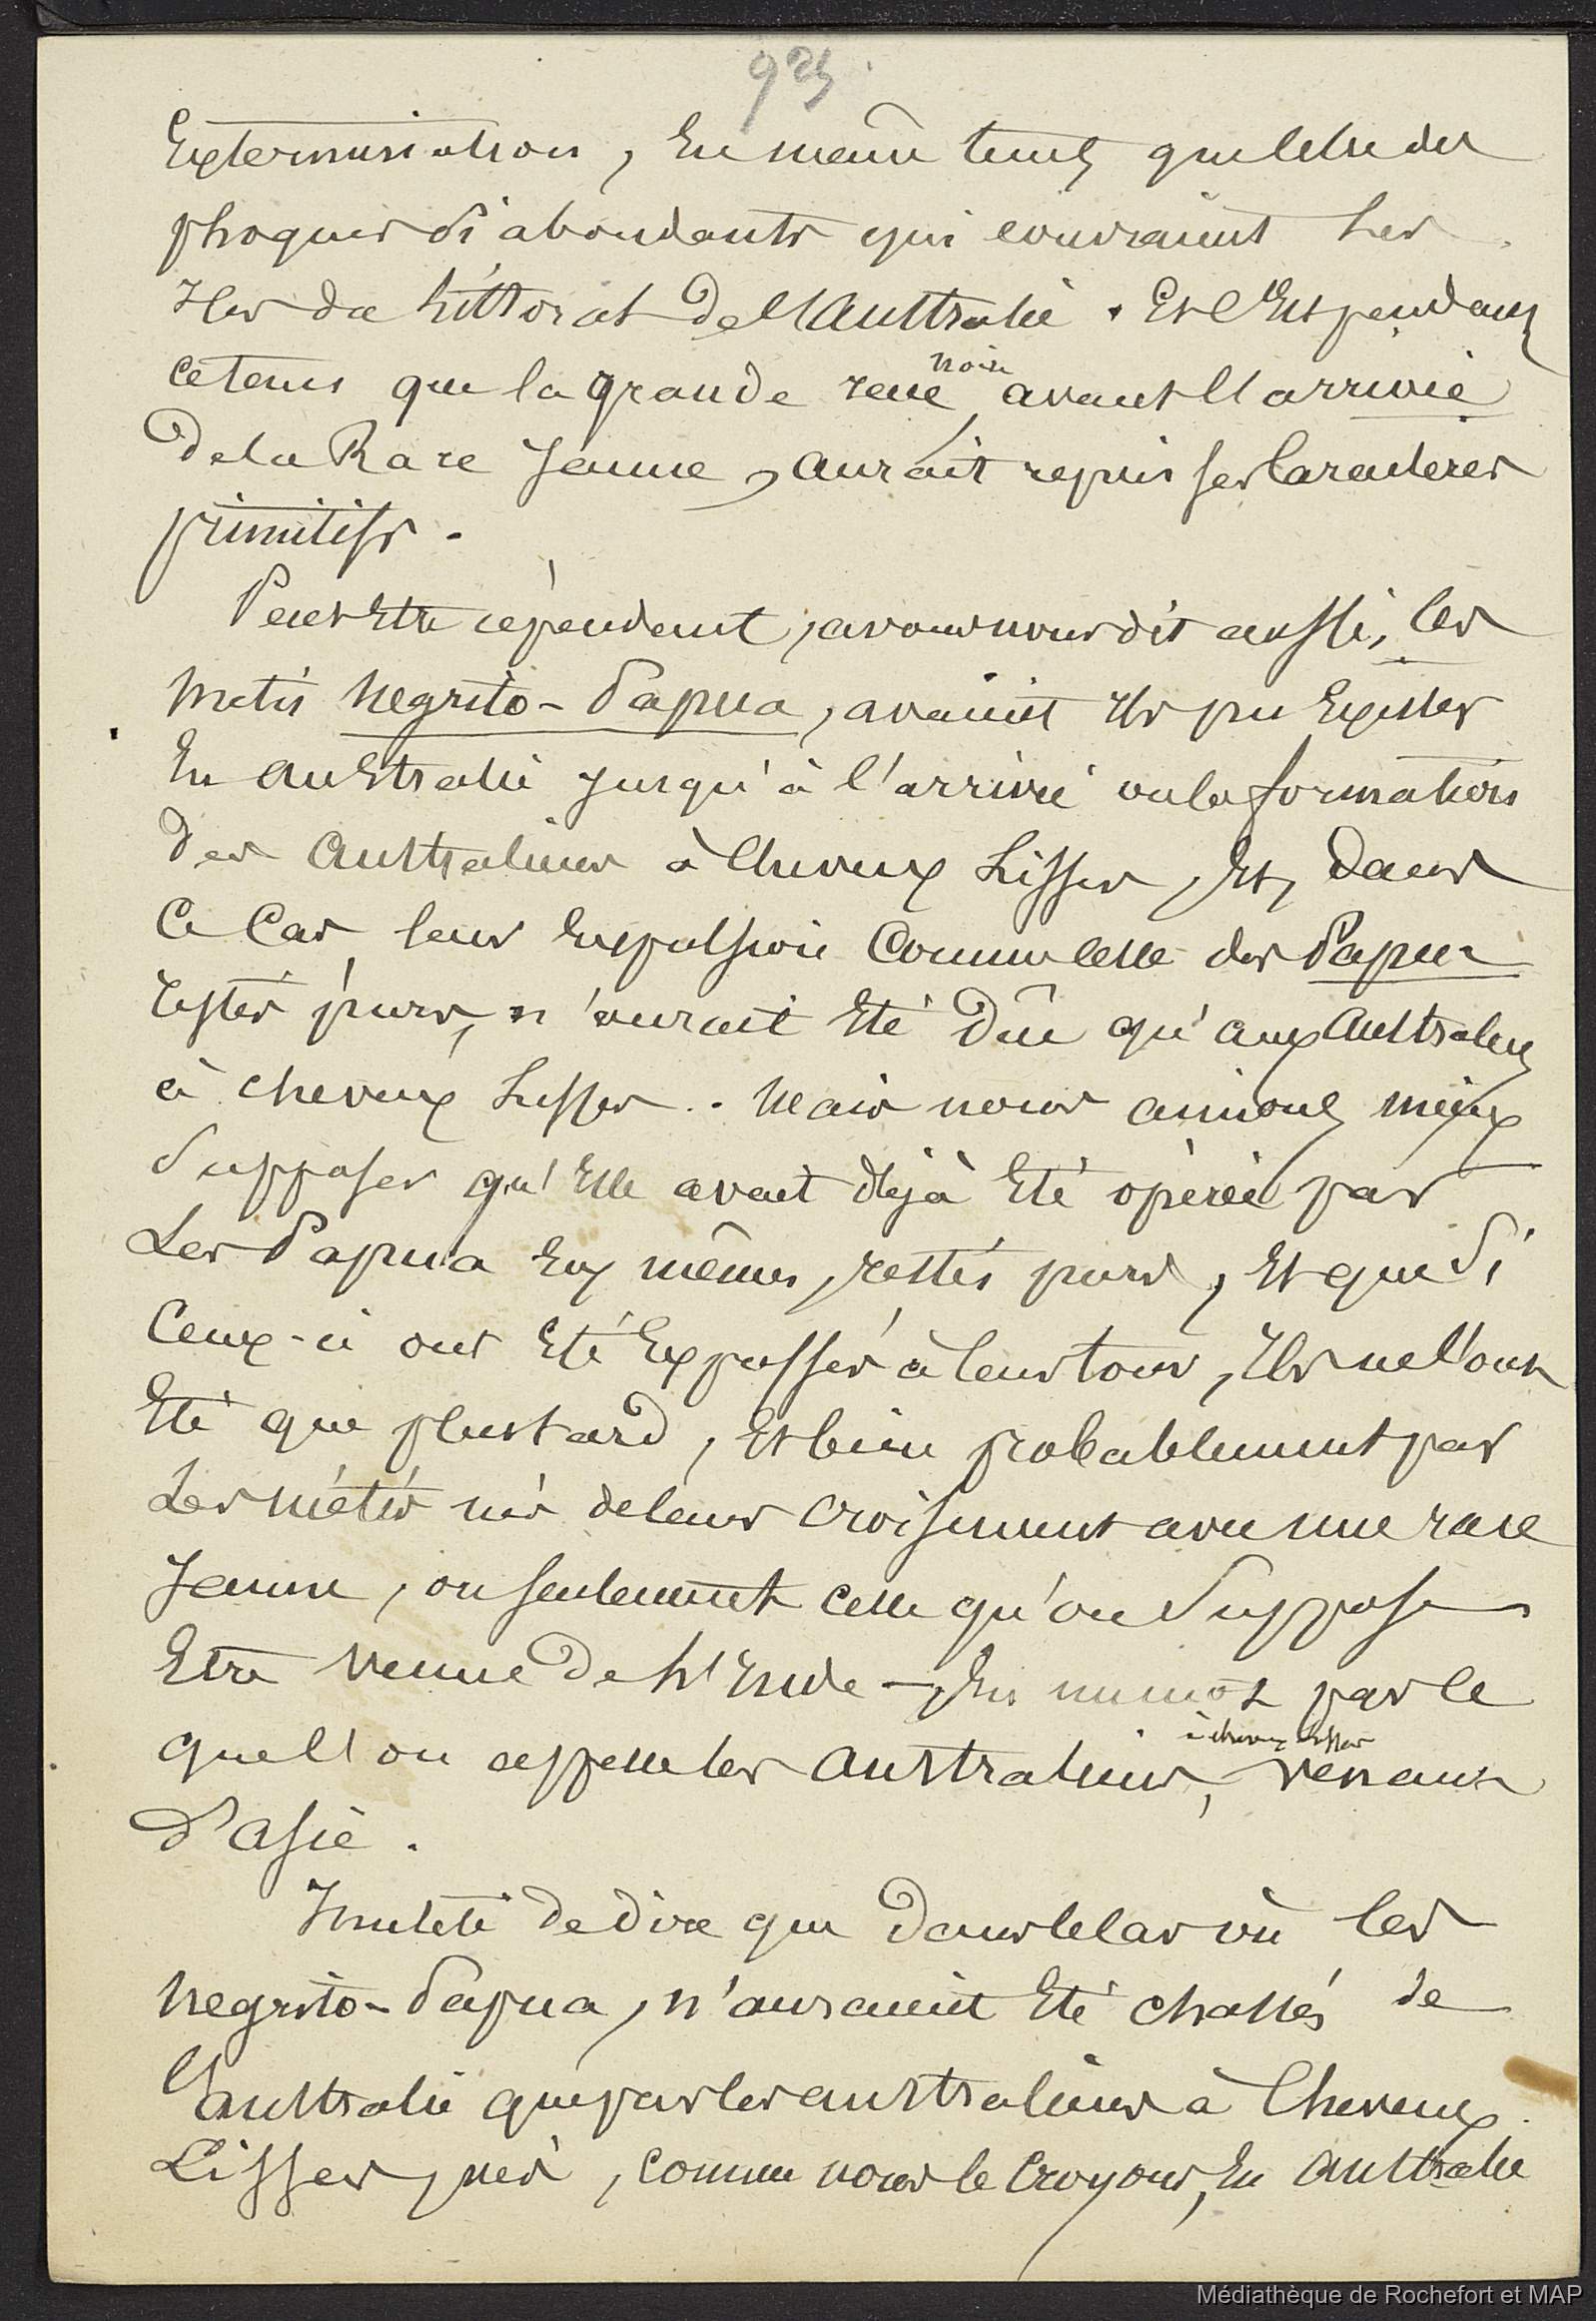 925
Extermination, En même temps que celle des
phoques si abondants qui couvraient Les
Iles du Littoral de l'Australie. Et c'Est pendant
ce tems que la grande race noire avant l'arrivée
de la Race Jaune, aurait repris ses Caracteres
primitifs.
Peut Etre cépendant, avons nous dit aussi, les
metis Negrito-Papua, avaient Ils pu Exister
En Australie jusqu'à l'arrivée ou la formation
des Australiens à Cheveux Lisses, Et, dans
Ce Cas, leur Expulsion Comme celle des Papua
restés purs, n'aurait Eté Dûe qu'aux Australiens
à cheveux Lisses. Mais nous aimons mieux
Supposer qu'Elle avait déjà Eté opérée par
Les Papua Eux mêmes, restés purs, Et que Si
Ceux-ci ont Eté Expulsés à leur tour, Ils ne l'ont
Eté que plus tard, Et bien probablement par
Les métis nés de leur Croisement avec une race
Jaune, ou seulement celle qu'on Suppose
Etre Venue De L'Inde — En un mot par ce
que l'on appelle les Australiens à cheveux Lisses, venant
d'Asie.
Inutile De dire que Dans le Cas où les
Negrito-Papua, n'auraient Eté chassés de
l'Australie que par les australiens à Cheveux
Lisses, nés, comme nous le Croyons, En Australie
Médiathèque de Rochefort et MAP